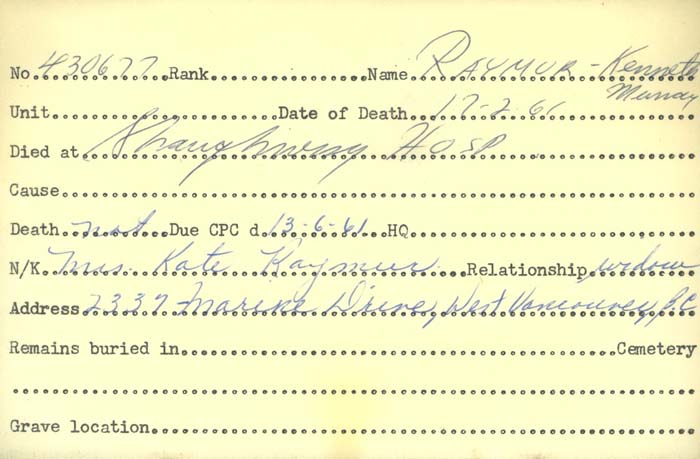 No. 430677 Rank Name RAYMUR - Kenneth
Murray
Unit Date of Death 17-2-61
Died at Shaughnessy HOSP
Cause
Death not Due CPC d 13-6-61 HQ
N/K Mrs. Kate Raymur Relationship widow
Address 2337 Marine Drive, West Vancouver, BC
Remains buried in Cemetery
Grave location